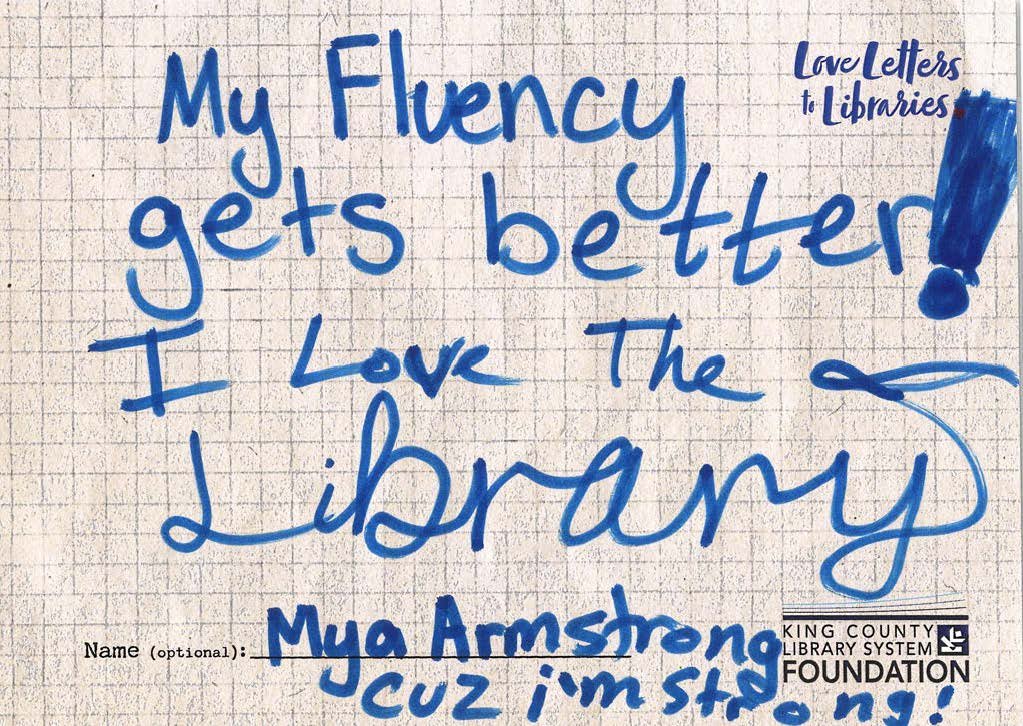 Love Letters
to Libraries
My Fluency
gets better!
I Love The
Library
Name (optional): Mya Armstrong
cuz i'm strong!
KING COUNTY
LIBRARY SYSTEM
FOUNDATION